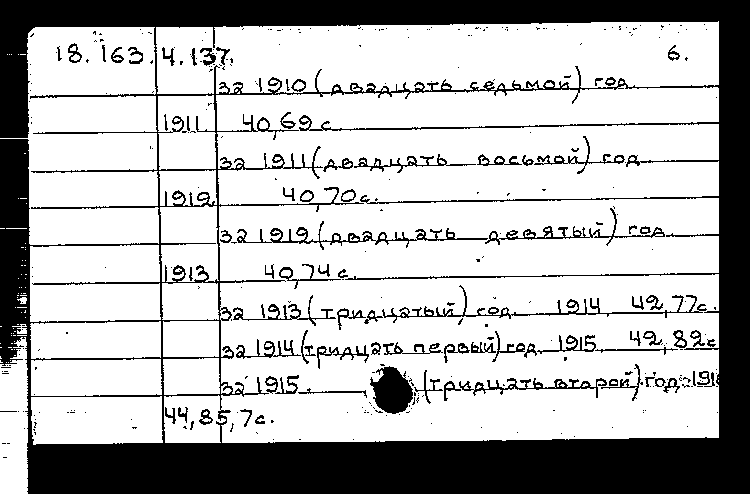 18.163.4.137. 6.
за 1910 (двадцать седьмой) год
1911 40,69 с
за 1911 (двадцать восьмой) год
1912 40,70 с.
за 1912 (двадцать девятый) год.
1913 40,74 с.
за 1913 (тридцатый) год. 1914 42,77с.
за 1914 (тридцать первый) год. 1915 42,82с
за 1915. (тридцать второй) год.
44,85,7с.